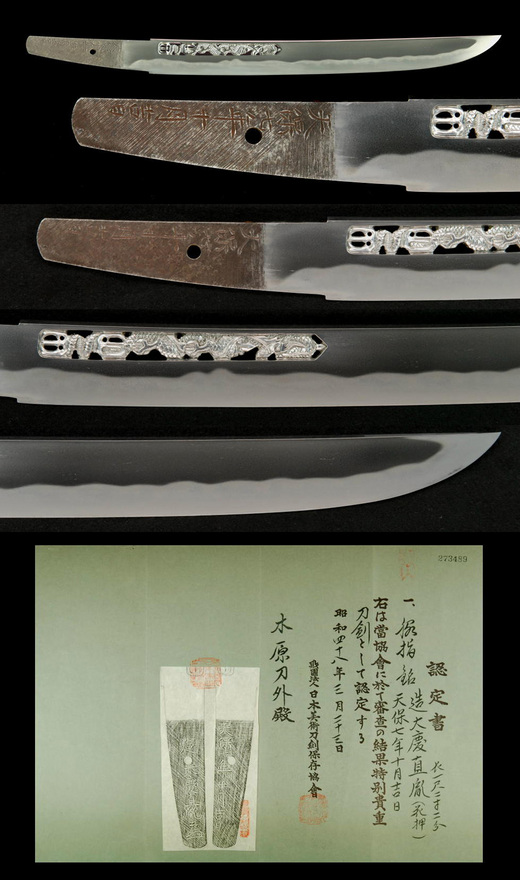 天保七年十月吉日
天保
273489
認定書
長一尺二寸二分
一、脇指 銘 造大慶直胤(花押)
天保七年十月吉日
右は當協會に於て審査の結果特別貴重
刀剣として認定する
昭和四十八年三月二十三日
財團法人日本美術刀剣保存協會
木原刀外殿